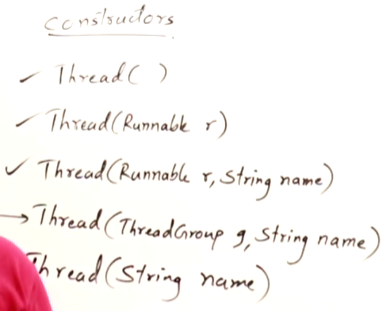 Constructors
✓ Thread( )
✓ Thread(Runnable r)
✓ Thread(Runnable r, String name)
→ Thread(ThreadGroup g, String name)
Thread(String name)